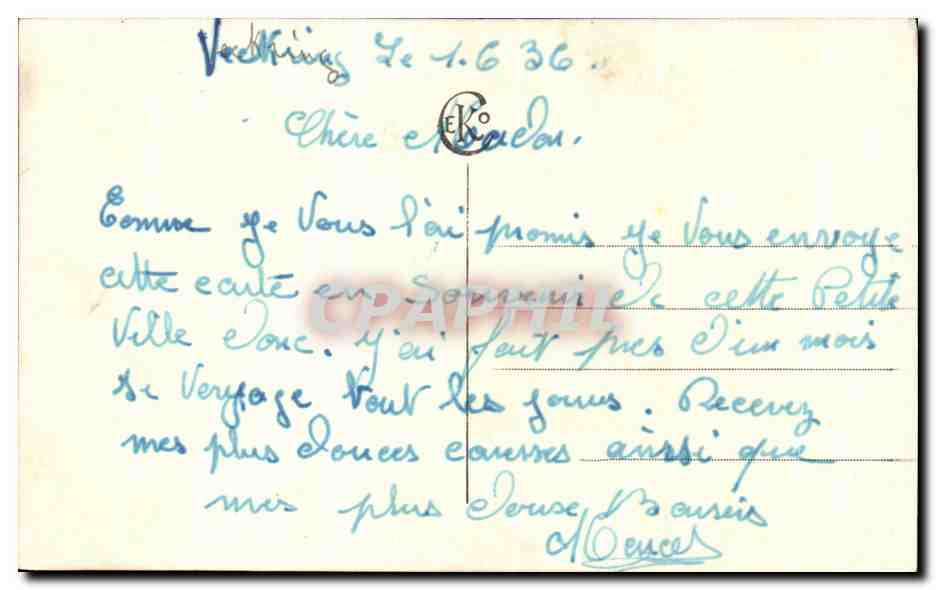 Veckring Le 1.6.36.
CEKO
Chère Madon.
Comme Je Vous l'ai promis Je Vous envoye
cette carte en Souvenir de cette Petite
CPAPHIL
Ville donc. J'ai fait pres d'un mois
de Voyage tout les jours. Recevez
mes plus douces caresses ainsi que
mes plus douse Baisers
Marcel